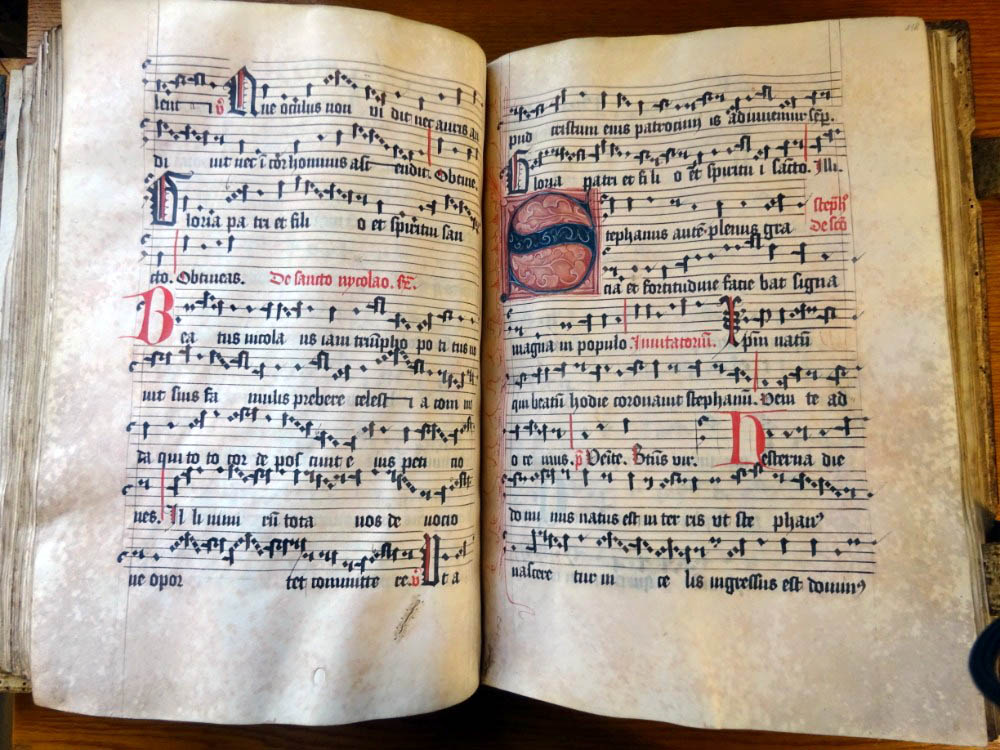 lent ℣ Que oculus non vi dit nec auris au
di uit nec ī cor hominis asc endit. Obtine.
Gloria pa tri et fili o et spiritui san
cto. Obtineas. De sancto nycolao.
Bea tus nicola us iam triūpho po ti tus no
uit suis fa mulis prebere celest i a com mo
da qui to to cor de pos cunt e ius peti cio
nes. Il li nimi rū tota nos de uocio
ne opor tet committe re. ℣ Vt a
pud cristum eius patrocini is adiuuemur sēp.
Gloria patri et fi li o et spiritu i sācto. Illi.
steph
De scō
Stephanus autē plenus gra
cia et fortitudine facie bat signa
magna in populo Inuitatoriū. Xpm natū
qui beatū hodie coronauit stephanū. Veni te ad
o re mus. p Venite. Btūs vir. Hesterna die
do mi nus natus est in ter ris vt ste phan9
nascere tur in ce lis ingressus est domin9